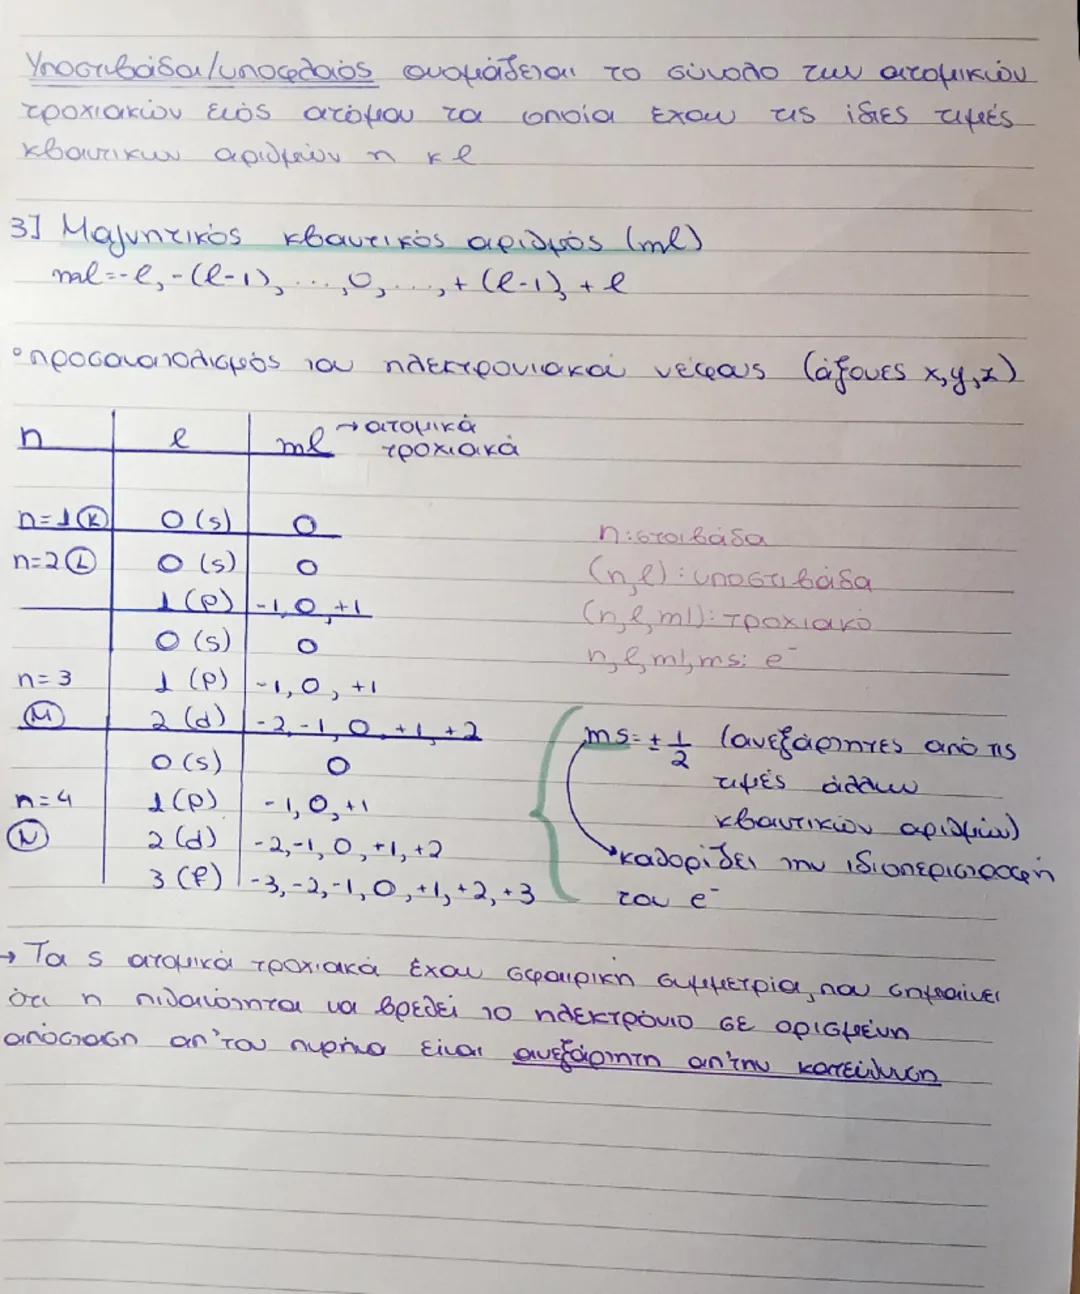 Υποστιβάδα/υποφλοιός ονομάζεται το σύνολο των ατομικών
τροχιακών ενός ατόμου τα οποία έχουν τις ίδιες τιμές
κβαντικών αριθμών n κ l
3] Μαγνητικός κβαντικός αριθμός (ml)
ml=-l, -(l-1), ..., 0, ..., +(l-1), +l
° προσανατολισμός του ηλεκτρονιακού νέφους (άξονες x,y,z)
n l ml → ατομικά τροχιακά
n=1 (K) 0 (s) 0
n=2 (L) 0 (s) 0
1 (p) -1, 0, +1
0 (s) 0
n=3 1 (p) -1, 0, +1
(M) 2 (d) -2, -1, 0, +1, +2
0 (s) 0
n=4 1 (p) -1, 0, +1
(N) 2 (d) -2, -1, 0, +1, +2
3 (f) -3, -2, -1, 0, +1, +2, +3
n: στοιβάδα
(n,l): υποστιβάδα
(n,l,ml): τροχιακό
n,l,ml,ms: e⁻
ms=± 1/2 (ανεξάρτητες από τις
τιμές άλλων
κβαντικών αριθμών)
καθορίζει την ιδιοπεριστροφή
του e⁻
→ Τα s ατομικά τροχιακά έχουν σφαιρική συμμετρία, που σημαίνει
ότι η πιθανότητα να βρεθεί το ηλεκτρόνιο σε ορισμένη
απόσταση απ'τον πυρήνα είναι ανεξάρτητη απ'την κατεύθυνση